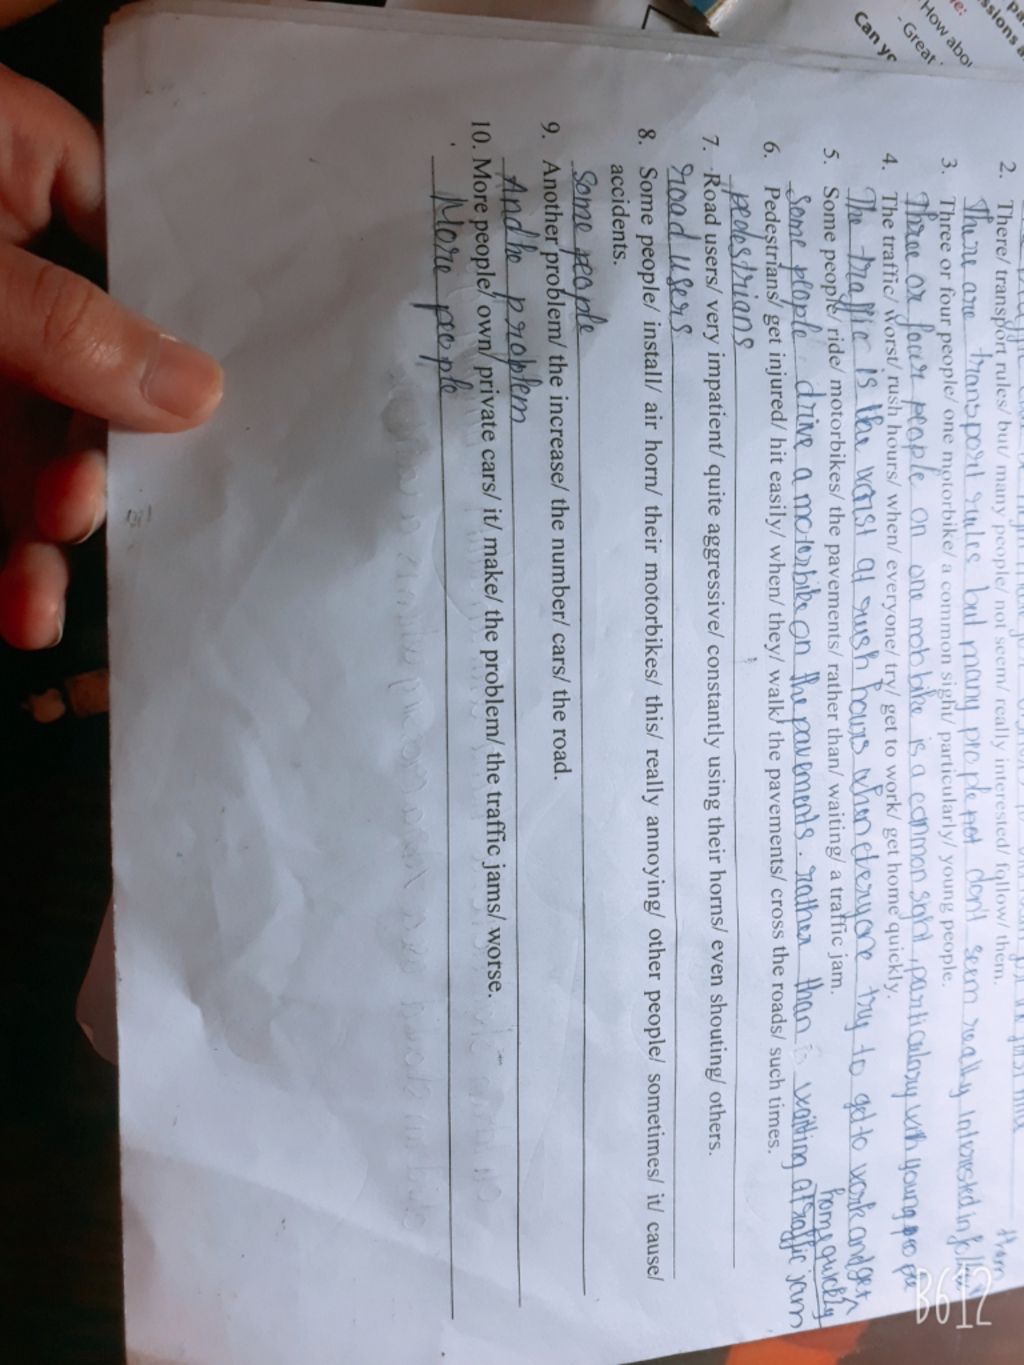 Can yo
- Great
How abou
re:
ssions a
2. There/ transport rules/ but/ many people/ not seem/ really interested/ follow/ them.
There are transport rules but many people not don't seem really interested in follow them
3. Three or four people/ one motorbike/ a common sight/ particularly/ young people.
Three or four people on one motobike is a common sight, particulary with young people
4. The traffic/ worst/ rush hours/ when/ everyone/ try/ get to work/ get home quickly.
The traffic is the worst at rush hours when everyone try to get to work and get home quickly
5. Some people/ ride/ motorbikes/ the pavements/ rather than/ waiting/ a traffic jam.
Some people drive a motorbike on the pavements. rather than is waiting a traffic jam
6. Pedestrians/ get injured/ hit easily/ when/ they/ walk/ the pavements/ cross the roads/ such times.
pedestrians
7. Road users/ very impatient/ quite aggressive/ constantly using their horns/ even shouting/ others.
road users
8. Some people/ install/ air horn/ their motorbikes/ this/ really annoying/ other people/ sometimes/ it/ cause/
accidents.
Some people
9. Another problem/ the increase/ the number/ cars/ the road.
Andhe problem
10. More people/ own/ private cars/ it/ make/ the problem/ the traffic jams/ worse.
More people
B612